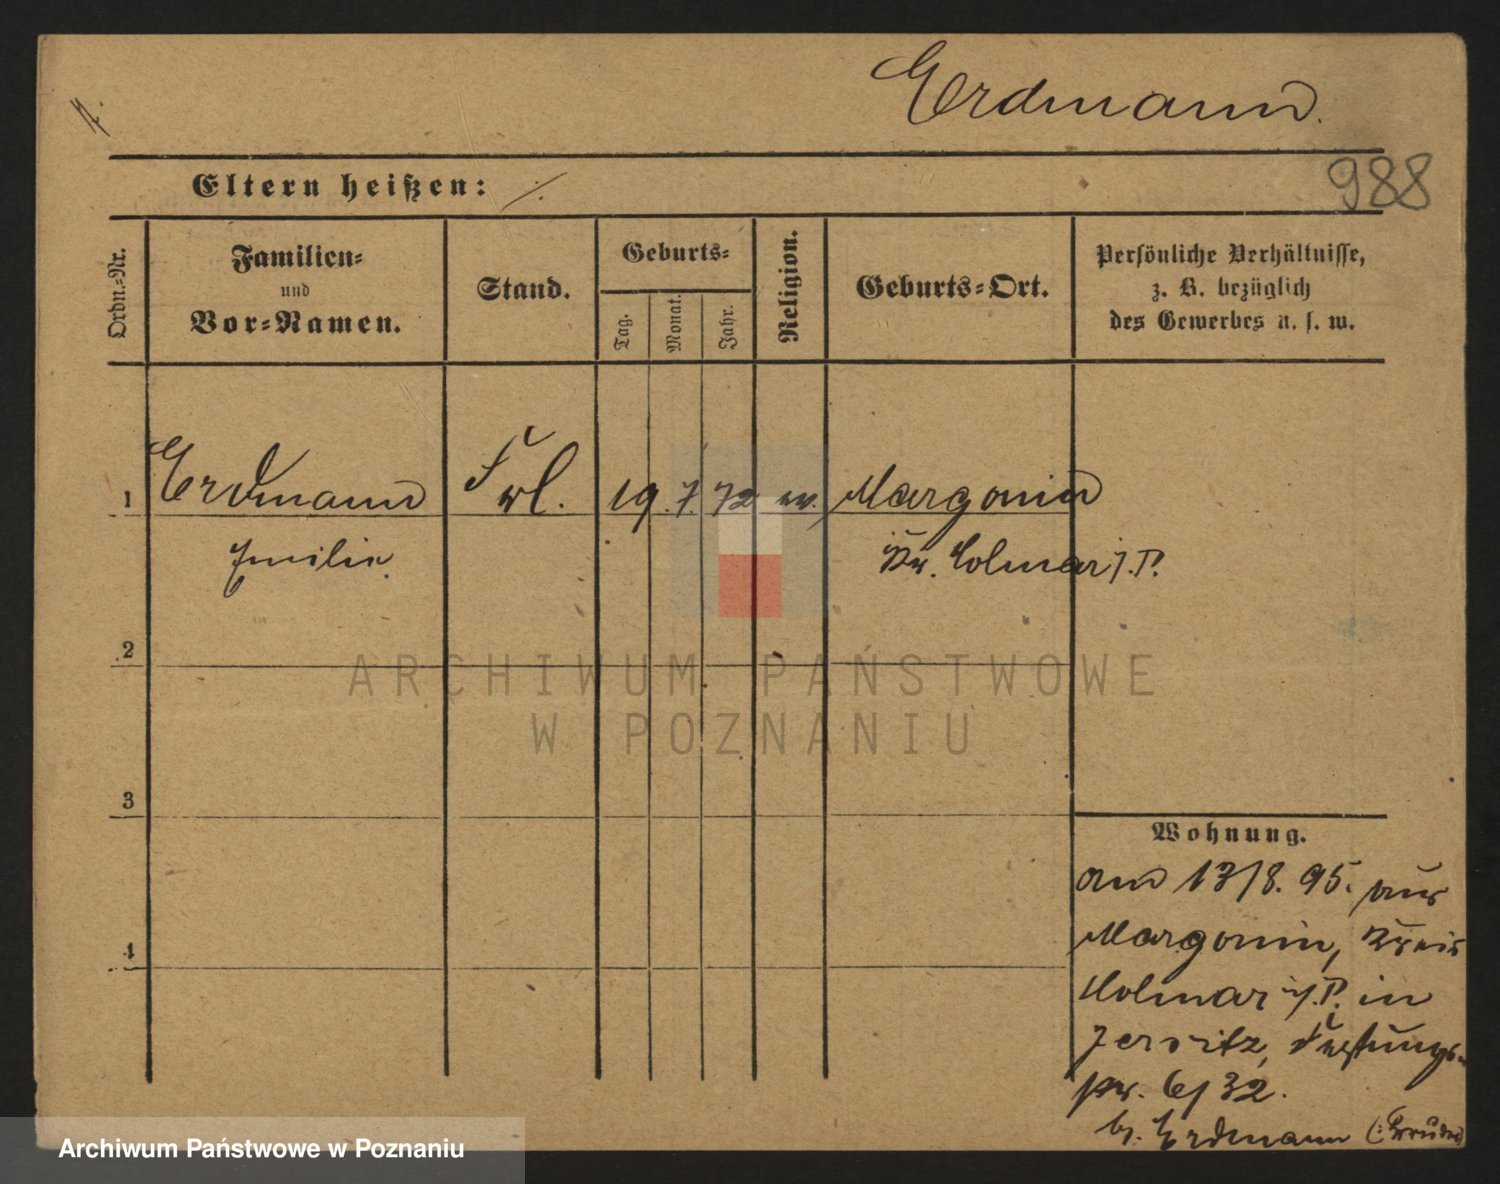 Erdmann.
988
Eltern heißen: ./.
Ordn.-Nr.
Familien-
und
Vor-Namen.
Stand.
Geburts-
Tag.
Monat.
Jahr.
Religion.
Geburts-Ort.
Persönliche Verhältnisse,
z. B. bezüglich
des Gewerbes u. s. w.
1 Erdmann Frl. 19. 7. 72 ev. Margonin
Emilie Kr. Colmar i/P.
2
3
4
ARCHIWUM PAŃSTWOWE
W POZNANIU
Wohnung.
am 13/8. 95. aus
Margonin, Kreis
Kolmar i/P. in
Jersitz, Festungs-
str. 6/32.
b. Erdmann (: Bruder)
Archiwum Państwowe w Poznaniu